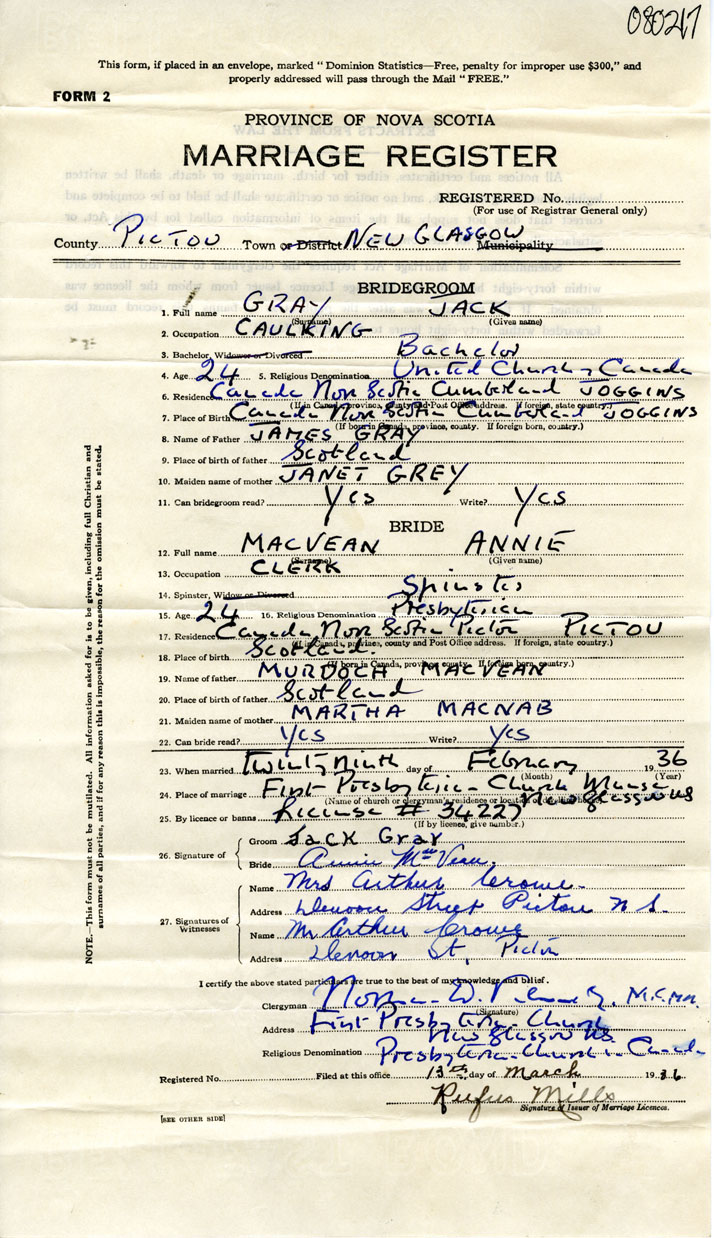 080217
This form, if placed in an envelope, marked "Dominion Statistics—Free, penalty for improper use $300," and
properly addressed will pass through the Mail "FREE."
FORM 2
PROVINCE OF NOVA SCOTIA
MARRIAGE REGISTER
REGISTERED No.
(For use of Registrar General only)
County PICTOU Town or District NEW GLASGOW Municipality
BRIDEGROOM
1. Full name GRAY JACK
(Surname) (Given name)
2. Occupation CAULKING
3. Bachelor, Widower or Divorced Bachelor
4. Age 24 5. Religious Denomination United Church, Canada
6. Residence Canada Nova Scotia Cumberland JOGGINS
(If in Canada, province, county and Post Office address. If foreign, state country.)
7. Place of Birth Canada Nova Scotia Cumberland JOGGINS
(If born in Canada, province, county. If foreign born, country.)
8. Name of Father JAMES GRAY
9. Place of birth of father Scotland
10. Maiden name of mother JANET GREY
11. Can bridegroom read? Yes Write? Yes
BRIDE
12. Full name MACVEAN ANNIE
(Surname) (Given name)
13. Occupation CLERK
14. Spinster, Widow or Divorced Spinster
15. Age 24 16. Religious Denomination Presbyterian
17. Residence Canada Nova Scotia Pictou PICTOU
(If in Canada, province, county and Post Office address. If foreign, state country.)
18. Place of birth Scotland.
(If born in Canada, province, county. If foreign born, country.)
19. Name of father MURDOCH MACVEAN
20. Place of birth of father Scotland
21. Maiden name of mother MARTHA MACNAB
22. Can bride read? Yes Write? Yes
23. When married Twenty ninth day of February 1936
(Month) (Year)
24. Place of marriage First Presbyterian Church Manse
New Glasgow NS
(Name of church or clergyman's residence or location of
25. By licence or banns License # 34227
(If by licence, give number.)
26. Signature of
Groom Jack Gray
Bride Annie McVean.
27. Signatures of Witnesses
Name Mrs Arthur Crowe
Address Denoon Street Pictou N S.
Name Mr Arthur Crowe
Address Denoon St, Pictou
I certify the above stated particulars are true to the best of my knowledge and belief.
Clergyman Norman D.
(Signature)
Address First Presbyterian Church
New Glasgow NS.
Religious Denomination Presbyterian Church in Canada
Registered No. Filed at this office 13th day of March 1936
Rufus Mills
Signature of Issuer of Marriage Licences.
[SEE OTHER SIDE]
NOTE.—This form must not be mutilated. All information asked for is to be given, including full Christian and
surnames of all parties, and if for any reason this is impossible, the reason for the omission must be stated.